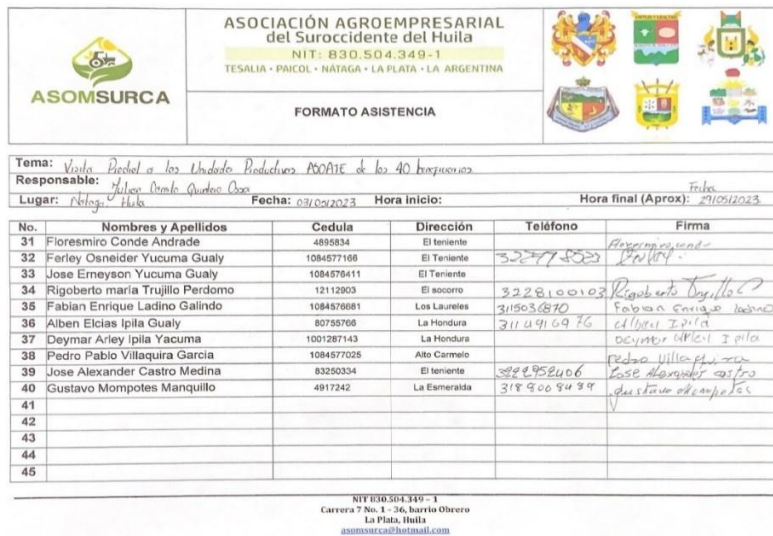 ASOMSURCA
ASOCIACIÓN AGROEMPRESARIAL
del Suroccidente del Huila
NIT: 830.504.349-1
TESALIA - PAICOL - NÁTAGA - LA PLATA - LA ARGENTINA
FORMATO ASISTENCIA
Tema: Visita Predial a las Unidades Productivas ASOATE de los 40 beneficiarios
Responsable: Julian Camilo Quintero Ossa
Lugar: Nátaga Huila Fecha: 03/05/2023 Hora inicio: Hora final (Aprox): Fecha 29/05/2023
No. Nombres y Apellidos Cedula Dirección Teléfono Firma
31 Floresmiro Conde Andrade 4895834 El teniente
32 Ferley Osneider Yucuma Gualy 1084577166 El Teniente
33 Jose Erneyson Yucuma Gualy 1084576411 El Teniente
34 Rigoberto maria Trujillo Perdomo 12112903 El socorro 3228100103 Rigoberto Trujillo
35 Fabian Enrique Ladino Galindo 1084576681 Los Laureles 3115036870 Fabian Enrique ladino
36 Alben Elcias Ipila Gualy 80755766 La Hondura 3114916976 Alben Ipila
37 Deymar Arley Ipila Yacuma 1001287143 La Hondura
38 Pedro Pablo Villaquira Garcia 1084577025 Alto Carmelo pedro Villaquira
39 Jose Alexander Castro Medina 83250334 El teniente 3222952406 Jose Alexander castro
40 Gustavo Mompotes Manquillo 4917242 La Esmeralda gustavo Mompotes
41
42
43
44
45
NIT 830.504.349 – 1
Carrera 7 No. 1 – 36, barrio Obrero
La Plata, Huila
asomsurca@hotmail.com